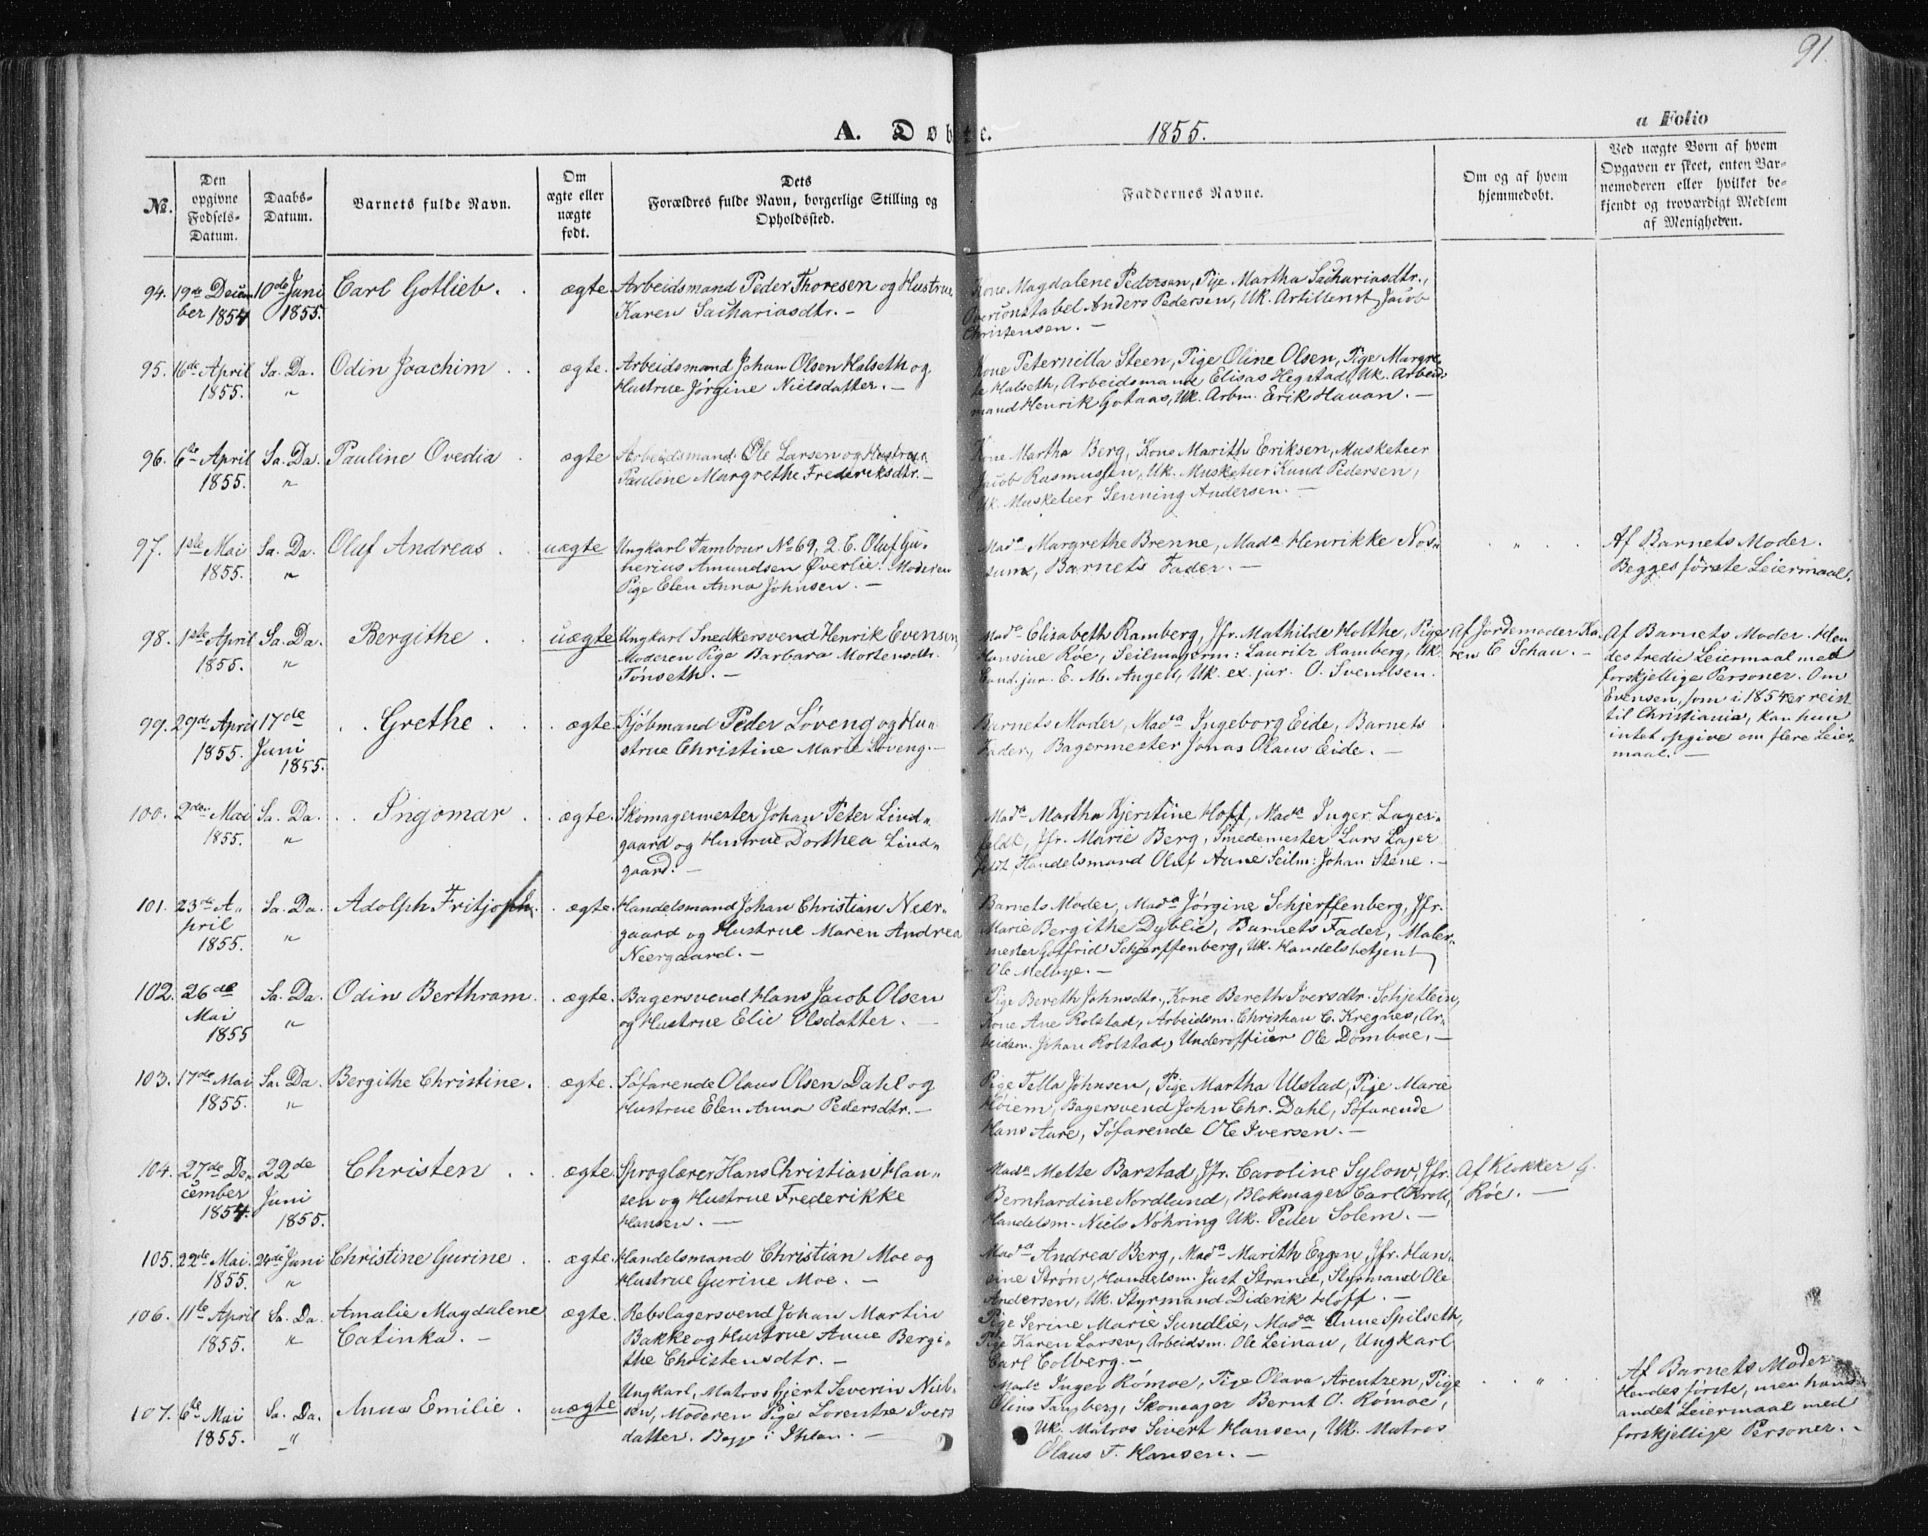 91.
A. Døbte. 1855. a Folio
№.
Den opgivne Fødsels-Datum.
Daabs-Datum.
Barnets fulde Navn.
Om ægte eller uægte født.
Dets Forældres fulde Navn, borgerlige Stilling og Opholdssted.
Faddernes Navne.
Om og af hvem hjemmedøbt.
Ved uægte Børn af hvem Opgaven er skeet, enten Barnemoderen eller hvilket bekjendt og troværdigt Medlem af Menigheden.
94. 19de Decem- 10de Juni Carl Gotlieb. ægte Arbeidsmand Peder Thoresen og Hustrue Kone Magdalene Pedersen, Pige Martha Sachariasdtr.,
ber 1854 1855. Karen Sachariasdtr. — Overconstabel Anders Pedersen, Uk. Artillerist Jacob
Christensen. —
95. 16de April Sa. Da. Odin Joachim ægte. Arbeidsmand Johan Olsen Halseth og Kone Peternilla Steen, Pige Oline Olsen, Pige Margre-
1855. " Hustrue Jørgine Nielsdatter. — te Halseth, Arbeidsmand Elisas Hegstad, Uk. Arbeids
mand Henrik Gotaas, Uk. Arbm. Erik Havan. —
96. 6te April Sa. Da. Pauline Ovedia ægte Arbeidsmand Ole Larsen og Hustrue Kone Martha Berg, Kone Marith Eriksen, Musketeer
1855. " Pauline Margrethe Frederiksdtr. — Jacob Rasmussen, Uk. Musketeer Knud Pedersen,
Uk. Musketeer Senning Andersen. —
97. 1ste Mai Sa. Da. Oluf Andreas uægte Ungkarl Tambour No 69, 2. C. Oluf Gu- Mada Margrethe Brenne, Mada Henrikke Nos- " Af Barnets Moder.
1855. " nerius Amundsen Øverlie. Moderen sum, Barnets Fader. — Begges første Leiermaal.
Pige Elen Anna Johnsen. —
98. 1ste April Sa. Da. Bergithe uægte Ungkarl Snedkersvend Henrik Evensen, Mada Elisabeth Ramberg, Jfr. Mathilde Holthe, Pige Af Jordemoder Ka- Af Barnets Moder. Hen
1855. " Moderen Pige Barbara Mortensdtr. Hansine Røe, Seilmagerm: Lauritz Ramberg, Uk. ren C Schau. — des tredie Leiermaal med
Tønseth. — Cand. jur. E. M. Angell, Uk. ex. jur. O. Svendsen. forskjellige Personer. Om
Evensen, som i 1854 er reist
til Christiania, kan hun
intet opgive om flere Leier-
maal. —
99. 29de April 17de Grethe ægte. Kjøbmand Peder Løveng og Hu- Barnets Moder, Mada Ingeborg Eide, Barnets
1855. Juni strue Christine Marie Løveng. — Fader, Bagermester Jonas Olaus Eide. —
1855.
100. 2den Mai Sa. Da. Ingomar ægte. Skomagermester Johan Peter Lind- Mada Martha Kjerstine Hoff, Mada Inger Lager-
1855. " gaard og Hustrue Dorthea Lind- feldt, Jfr. Marie Berg, Smedemester Lars Lager
gaard. — feldt, Handelsmand Oluf Aune Seilm: Johan Stene. —
101. 23de A- Sa. Da. Adolph Fritjoph. ægte. Handelsmand Johan Christian Neer- Barnets Moder, Mada Jørgine Schjerffenberg, Jfr.
pril " gaard og Hustrue Maren Andrea Marie Bergithe Dyblie, Barnets Fader, Maler-
1855. Neergaard. — mester Gotfrid Schjerffenberg, Uk. Handelsbetjent
Ole Melbye. —
102. 26de Sa. Da. Odin Berthram. ægte. Bagersvend Hans Jacob Olsen Pige Bereth Johnsdtr., Kone Bereth Iversdtr. Schjetlein,
Mai " og Hustrue Elie Olsdatter. — Kone Ane Rolstad, Arbeidsm. Christian C. Kregnes, Ar-
1855 beidsm. Johan Rolstad, Underofficier Ole Domboe. —
103. 17de Mai Sa. Da. Bergithe Christine. ægte. Søfarende Olaus Olsen Dahl og Pige Tella Johnsen, Pige Martha Ulstad, Pige Marie
1855. " Hustrue Elen Anna Pedersdtr. — Høiem, Bagersvend John Chr. Dahl, Søfarende
Hans Aure, Søfarende Ole Iversen. —
104. 27de De- 22de Christen ægte. Sproglærer Hans Christian Han- Mada Mette Barstad, Jfr. Caroline Sylow, Jfr. Af Klokker G.
cember Juni sen og Hustrue Frederikke Bernhardine Nordlund, Blokmager Carl Kroll, Røe. —
1854. 1855. Hansen. — Handelsm. Niels Nøhring Uk. Peder Solem. —
105. 22de Mai 24de Juni Christine Gurine. ægte Handelsmand Christian Moe og Mada Andrea Berg, Mada Marith Eggen, Jfr. Han-
1855. " Hustrue Gurine Moe. — sine Strøm, Handelsm. Just Strand, Styrmand Ole
Andersen, Uk. Styrmand Diderik Hoff. —
106. 11te April Sa. Da. Amalie Magdalene ægte. Rebslagersvend Johan Martin Pige Serine Marie Sundlie, Mada Anne Spilseth,
1855. " Catinka. — Bakke og Hustrue Anne Bergi- Pige Karen Larsen, Arbeidsm. Ole Leinan, Ungkarl
the Christensdtr. — Carl Colberg. —
107. 6te Mai Sa. Da. Anna Emilie. uægte Ungkarl, Matros Hjert Severin Niel- Mada Inger Rømoe, Pige Olava Arentzen, Pige " Af Barnets Moder
1855. " sen, Moderen Pige Lorentze Ivers Oline Tangberg, Skomager Bernt O. Rømoe, Hendes første, men hans
datter. Begge i Ihlen. — Uk. Matros Sivert Hansen, Uk. Matros andet Leiermaal med
Olaus T. Hansen. — forskjellige Personer. —